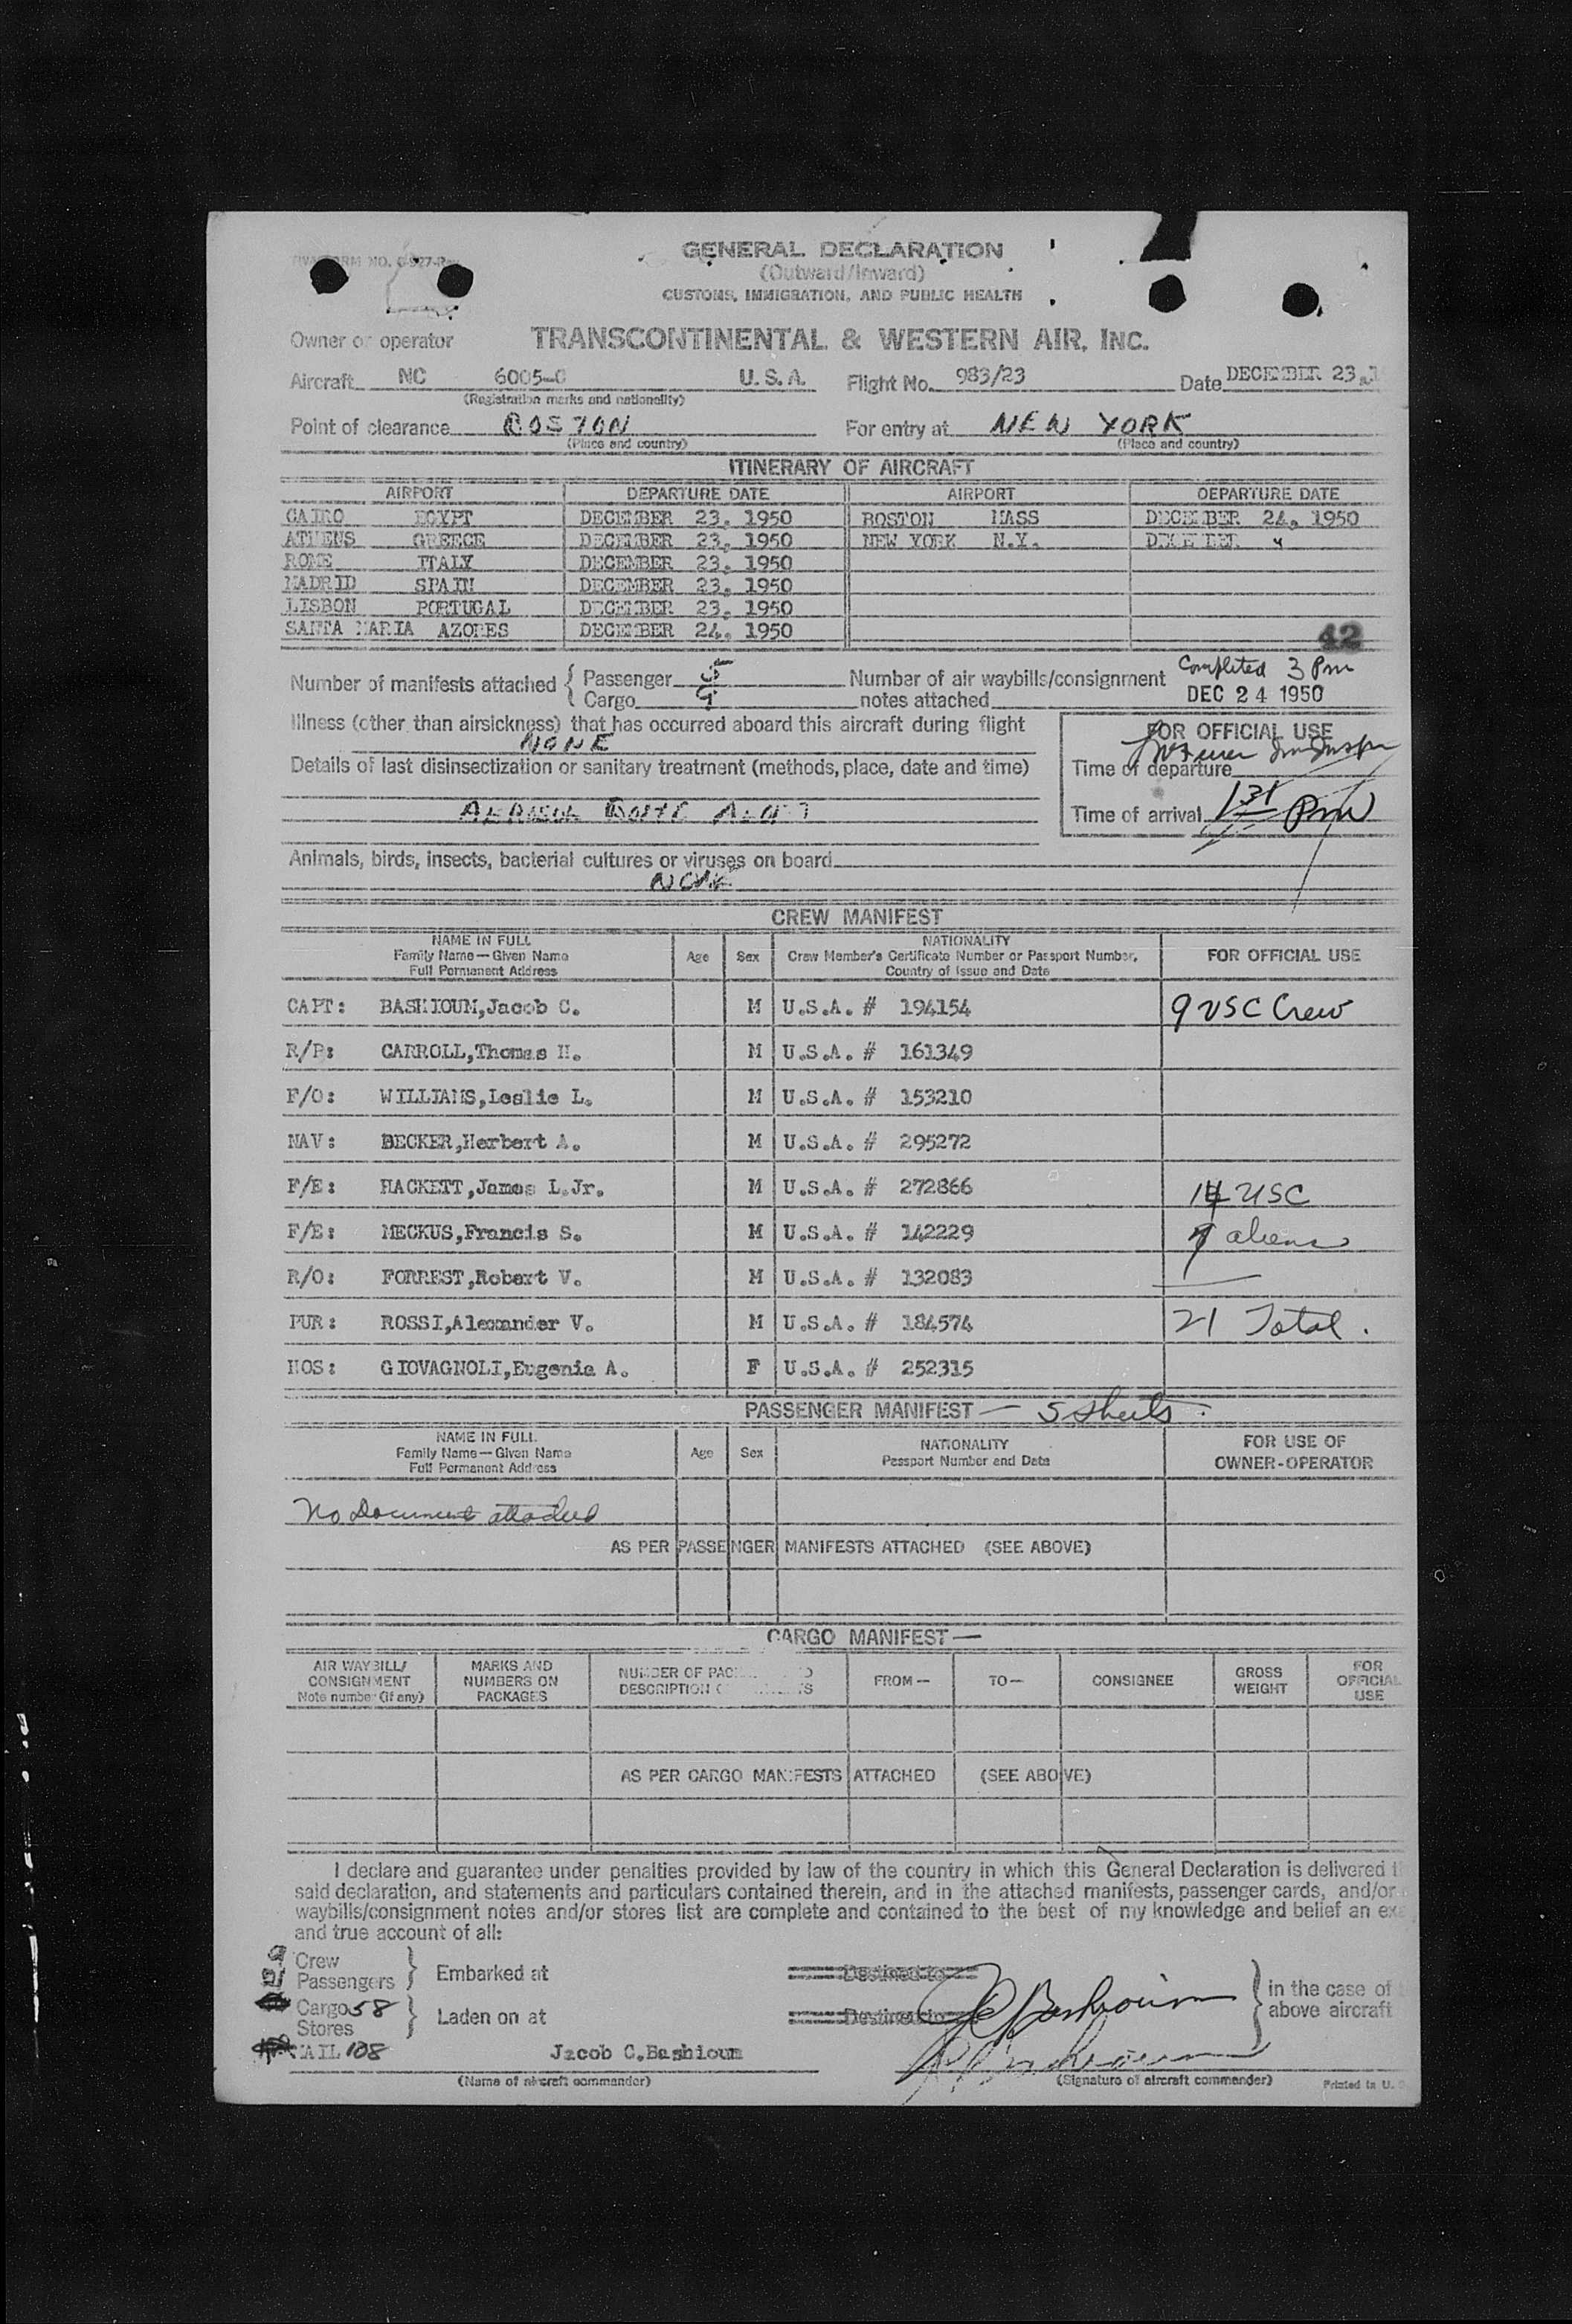 GENERAL DECLARATION
(Outward/Inward)
CUSTOMS, IMMIGRATION, AND PUBLIC HEALTH
Owner or operator TRANSCONTINENTAL & WESTERN AIR, INC.
Aircraft NC 6005-C U.S.A. Flight No. 983/23 Date DECEMBER 23,
(Registration marks and nationality)
Point of clearance BOSTON For entry at NEW YORK
(Place and country) (Place and country)
ITINERARY OF AIRCRAFT
AIRPORT DEPARTURE DATE AIRPORT DEPARTURE DATE
CAIRO EGYPT DECEMBER 23, 1950 BOSTON MASS DECEMBER 24, 1950
ATHENS GREECE DECEMBER 23, 1950 NEW YORK N.Y. DECEMBER "
ROME ITALY DECEMBER 23, 1950
MADRID SPAIN DECEMBER 23, 1950
LISBON PORTUGAL DECEMBER 23, 1950
SANTA MARIA AZORES DECEMBER 24, 1950
42
Number of manifests attached { Passenger 5 Number of air waybills/consignment Completed 3 Pm
Cargo 9 notes attached DEC 24 1950
Illness (other than airsickness) that has occurred aboard this aircraft during flight
NONE
FOR OFFICIAL USE
Details of last disinsectization or sanitary treatment (methods, place, date and time)
Time of departure
AEROSOL
Time of arrival 1 31 PM
Animals, birds, insects, bacterial cultures or viruses on board
NONE
CREW MANIFEST
NAME IN FULL
Family Name—Given Name
Full Permanent Address
Age Sex
NATIONALITY
Crew Member's Certificate Number or Passport Number,
Country of Issue and Date
FOR OFFICIAL USE
CAPT: BASHIOUM,Jacob C. M U.S.A. # 194154 9 USC Crew
R/P: CARROLL,Thomas H. M U.S.A. # 161349
F/O: WILLIAMS,Leslie L. M U.S.A. # 153210
NAV: BECKER,Herbert A. M U.S.A. # 295272
F/E: HACKETT,James L.Jr. M U.S.A. # 272866 14 USC
F/E: MECKUS,Francis S. M U.S.A. # 142229 7 aliens
R/O: FORREST,Robert V. M U.S.A. # 132083
PUR: ROSSI,Alexander V. M U.S.A. # 184574 21 Total.
HOS: GIOVAGNOLI,Eugenia A. F U.S.A. # 252315
PASSENGER MANIFEST — 5 sheets.
NAME IN FULL
Family Name—Given Name
Full Permanent Address
Age Sex
NATIONALITY
Passport Number and Date
FOR USE OF
OWNER-OPERATOR
No Document attached
AS PER PASSENGER MANIFESTS ATTACHED (SEE ABOVE)
CARGO MANIFEST—
AIR WAYBILL/
CONSIGNMENT
Note number (if any)
MARKS AND
NUMBERS ON
PACKAGES
NUMBER OF
DESCRIPTION
FROM—
TO—
CONSIGNEE
GROSS
WEIGHT
FOR
OFFICIAL
USE
AS PER CARGO MANIFESTS ATTACHED (SEE ABOVE)
I declare and guarantee under penalties provided by law of the country in which this General Declaration is delivered
said declaration, and statements and particulars contained therein, and in the attached manifests, passenger cards, and/or
waybills/consignment notes and/or stores list are complete and contained to the best of my knowledge and belief an
and true account of all:
9 Crew
21 Passengers } Embarked at Destined to
Cargo 58
Stores } Laden on at Destined to
in the case of
above aircraft
JCBashioum
MAIL 108 Jacob C.Bashioum
(Name of aircraft commander) (Signature of aircraft commander) Printed in U.